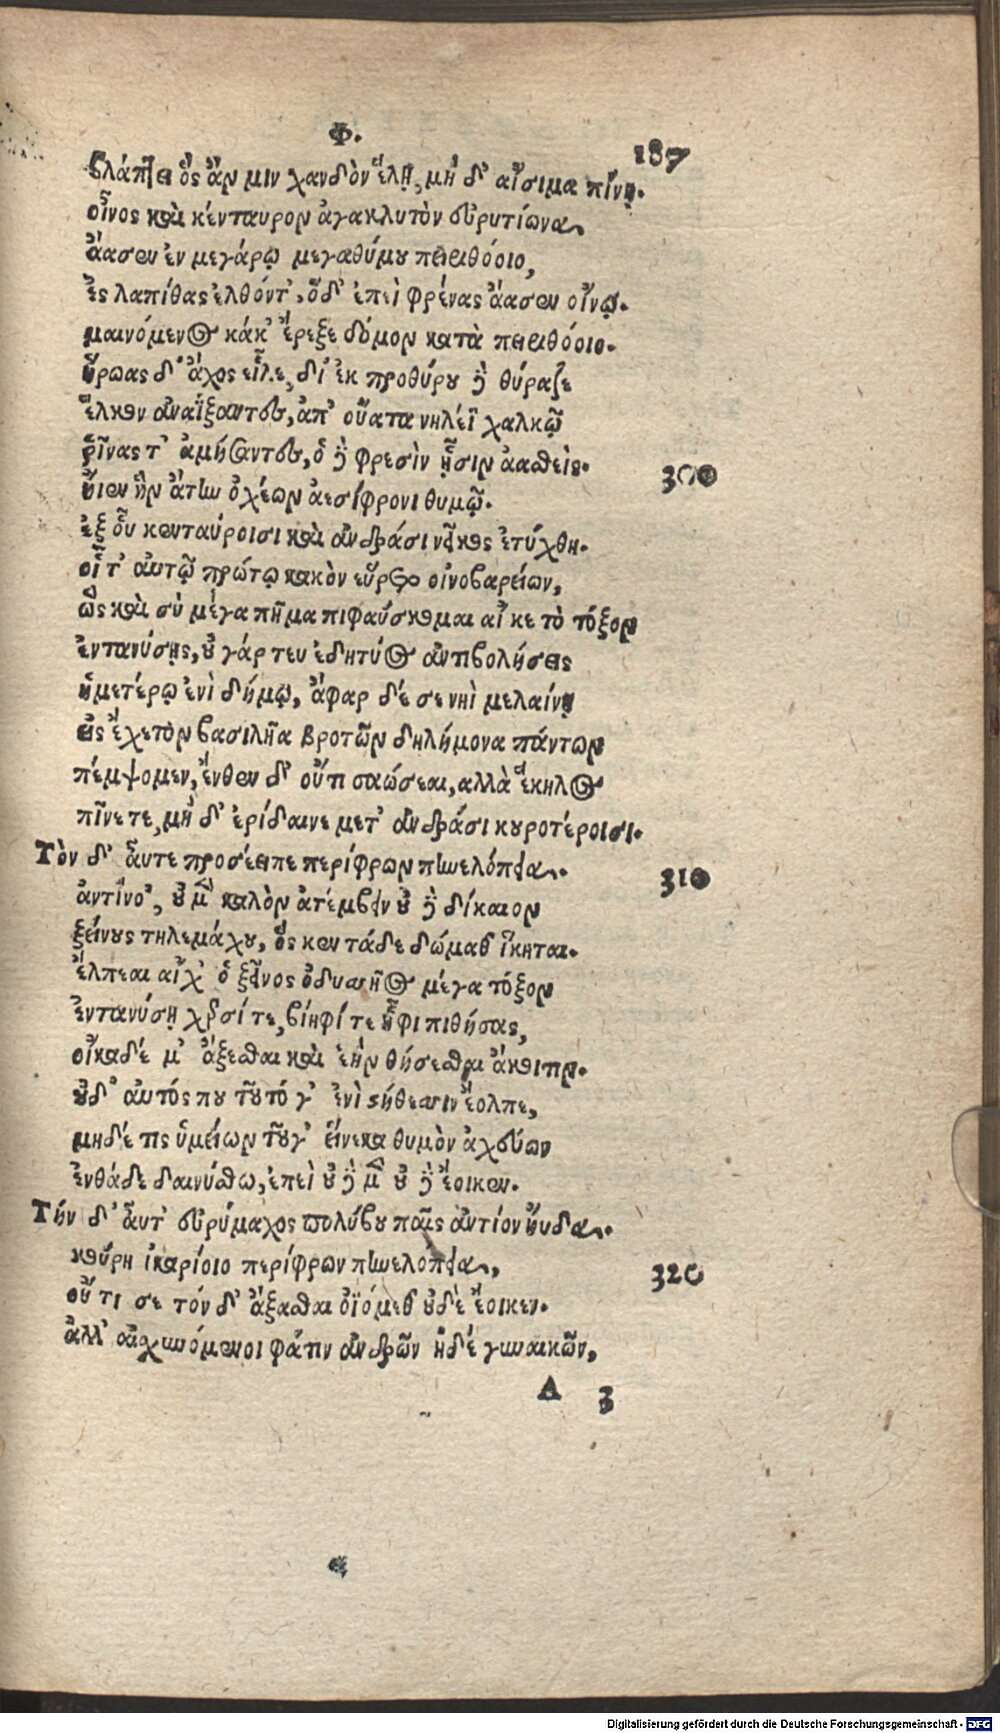 Φ.
187
βλάπτει ὃς ἄν μιν χανδὸν ἕλῃ, μὴ δ' αἴσιμα πίνῃ.
οἶνος καὶ κένταυρον ἀγακλυτὸν εὐρυτίωνα,
ἄασεν ἐν μεγάρῳ μεγαθύμου πειριθόοιο,
ἐς λαπίθας ἐλθόντ', ὅδ' ἐπεὶ φρένας ἄασεν οἴνῳ.
μαινόμενος κάκ' ἔρεξε δόμον κατὰ πειριθόοιο.
ἥρωας δ' ἄχος εἷλε, δι' ἐκ προθύρου δὲ θύραζε
ἕλκεν ἀναΐξαντες, ἀπ' οὔατα νηλέϊ χαλκῷ
ῥῖνας τ' ἀμήσαντες, ὁ δὲ φρεσὶν ᾗσιν ἀασθεὶς.
300
ἤιεν ἣν ἄτην ὀχέων ἀεσίφρονι θυμῷ.
ἐξ οὗ κενταύροισι καὶ ἀνδράσι νεῖκος ἐτύχθη.
οἷ τ' αὐτῷ πρώτῳ κακὸν εὕρετο οἰνοβαρείων,
ὣς καὶ σὺ μέγα πῆμα πιφαύσκομαι αἴ κε τὸ τόξον
ἐντανύσῃς, οὐ γάρ τευ ἐδητύος ἀντιβολήσεις
ἡμετέρῳ ἐνὶ δήμῳ, ἄφαρ δέ σε νηὶ μελαίνῃ
εἰς ἔχετον βασιλῆα βροτῶν δηλήμονα πάντων
πέμψομεν, ἔνθεν δ' οὔτι σαώσεαι, ἀλλὰ ἕκηλος
πῖνε τε, μὴ δ' ἐρίδαινε μετ' ἀνδράσι κουροτέροισι.
Τὸν δ' αὖτε προσέειπε περίφρων πηνελόπεια.
310
ἀντίνο', οὐ μὲν καλὸν ἀτέμβειν οὐ δὲ δίκαιον
ξείνους τηλεμάχου, ὅς κεν τάδε δώμαθ' ἵκηται.
ἔλπεαι αἴχ' ὁ ξεῖνος ὀδυσσῆος μέγα τόξον
ἐντανύσῃ χερσί τε, βίηφί τε ἧφι πιθήσας,
οἴκαδέ μ' ἄξεσθαι καὶ ἑὴν θήσεσθαι ἄκοιτιν.
οὐδ' αὐτός που τοῦτό γ' ἐνὶ στήθεσσιν ἔολπε,
μηδέ τις ὑμείων τοῦγ' εἵνεκα θυμὸν ἀχεύων
ἐνθάδε δαινύσθω, ἐπεὶ οὐ δὲ μὲν οὐ δὲ ἔοικεν.
Τήν δ' αὖτ' εὐρύμαχος πολύβου παῖς ἀντίον ηὔδα.
κούρη ἰκαρίοιο περίφρων πηνελόπεια,
320
οὔ τι σε τόν δ' ἄξασθαι ὀϊόμεθ' οὐδὲ ἔοικεν.
ἀλλ' αἰσχυνόμενοι φάτιν ἀνδρῶν ἠδέ γυναικῶν,
Λ 3
Digitalisierung gefördert durch die Deutsche Forschungsgemeinschaft - DFG